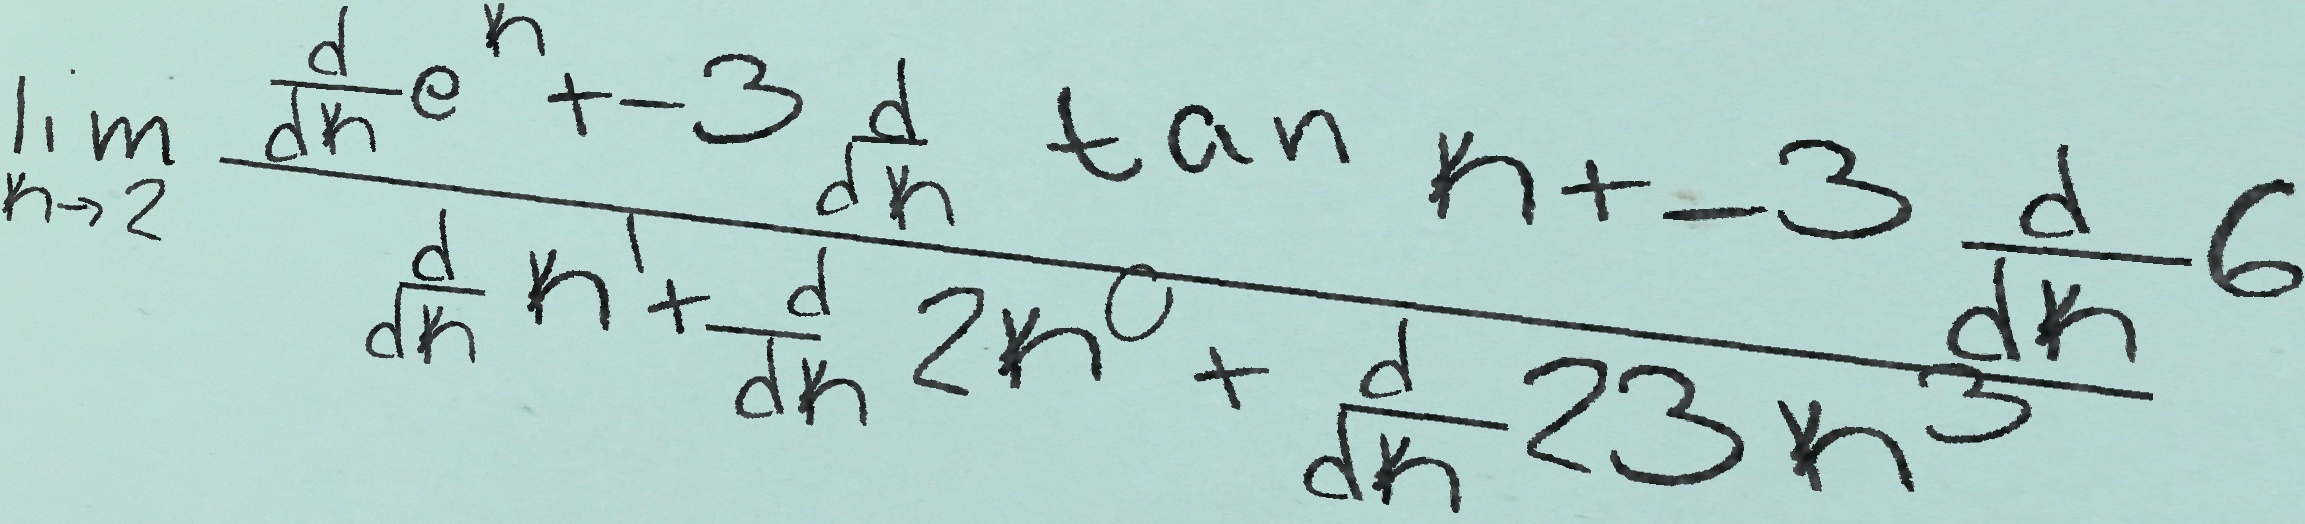 \lim_{n \to 2} \frac{\frac{d}{dn} e^{n} + -3 \frac{d}{dn} \tan n + -3 \frac{d}{dn} 6}{\frac{d}{dn} n^{1} + \frac{d}{dn} 2n^{0} + \frac{d}{dn} 23n^{3}}